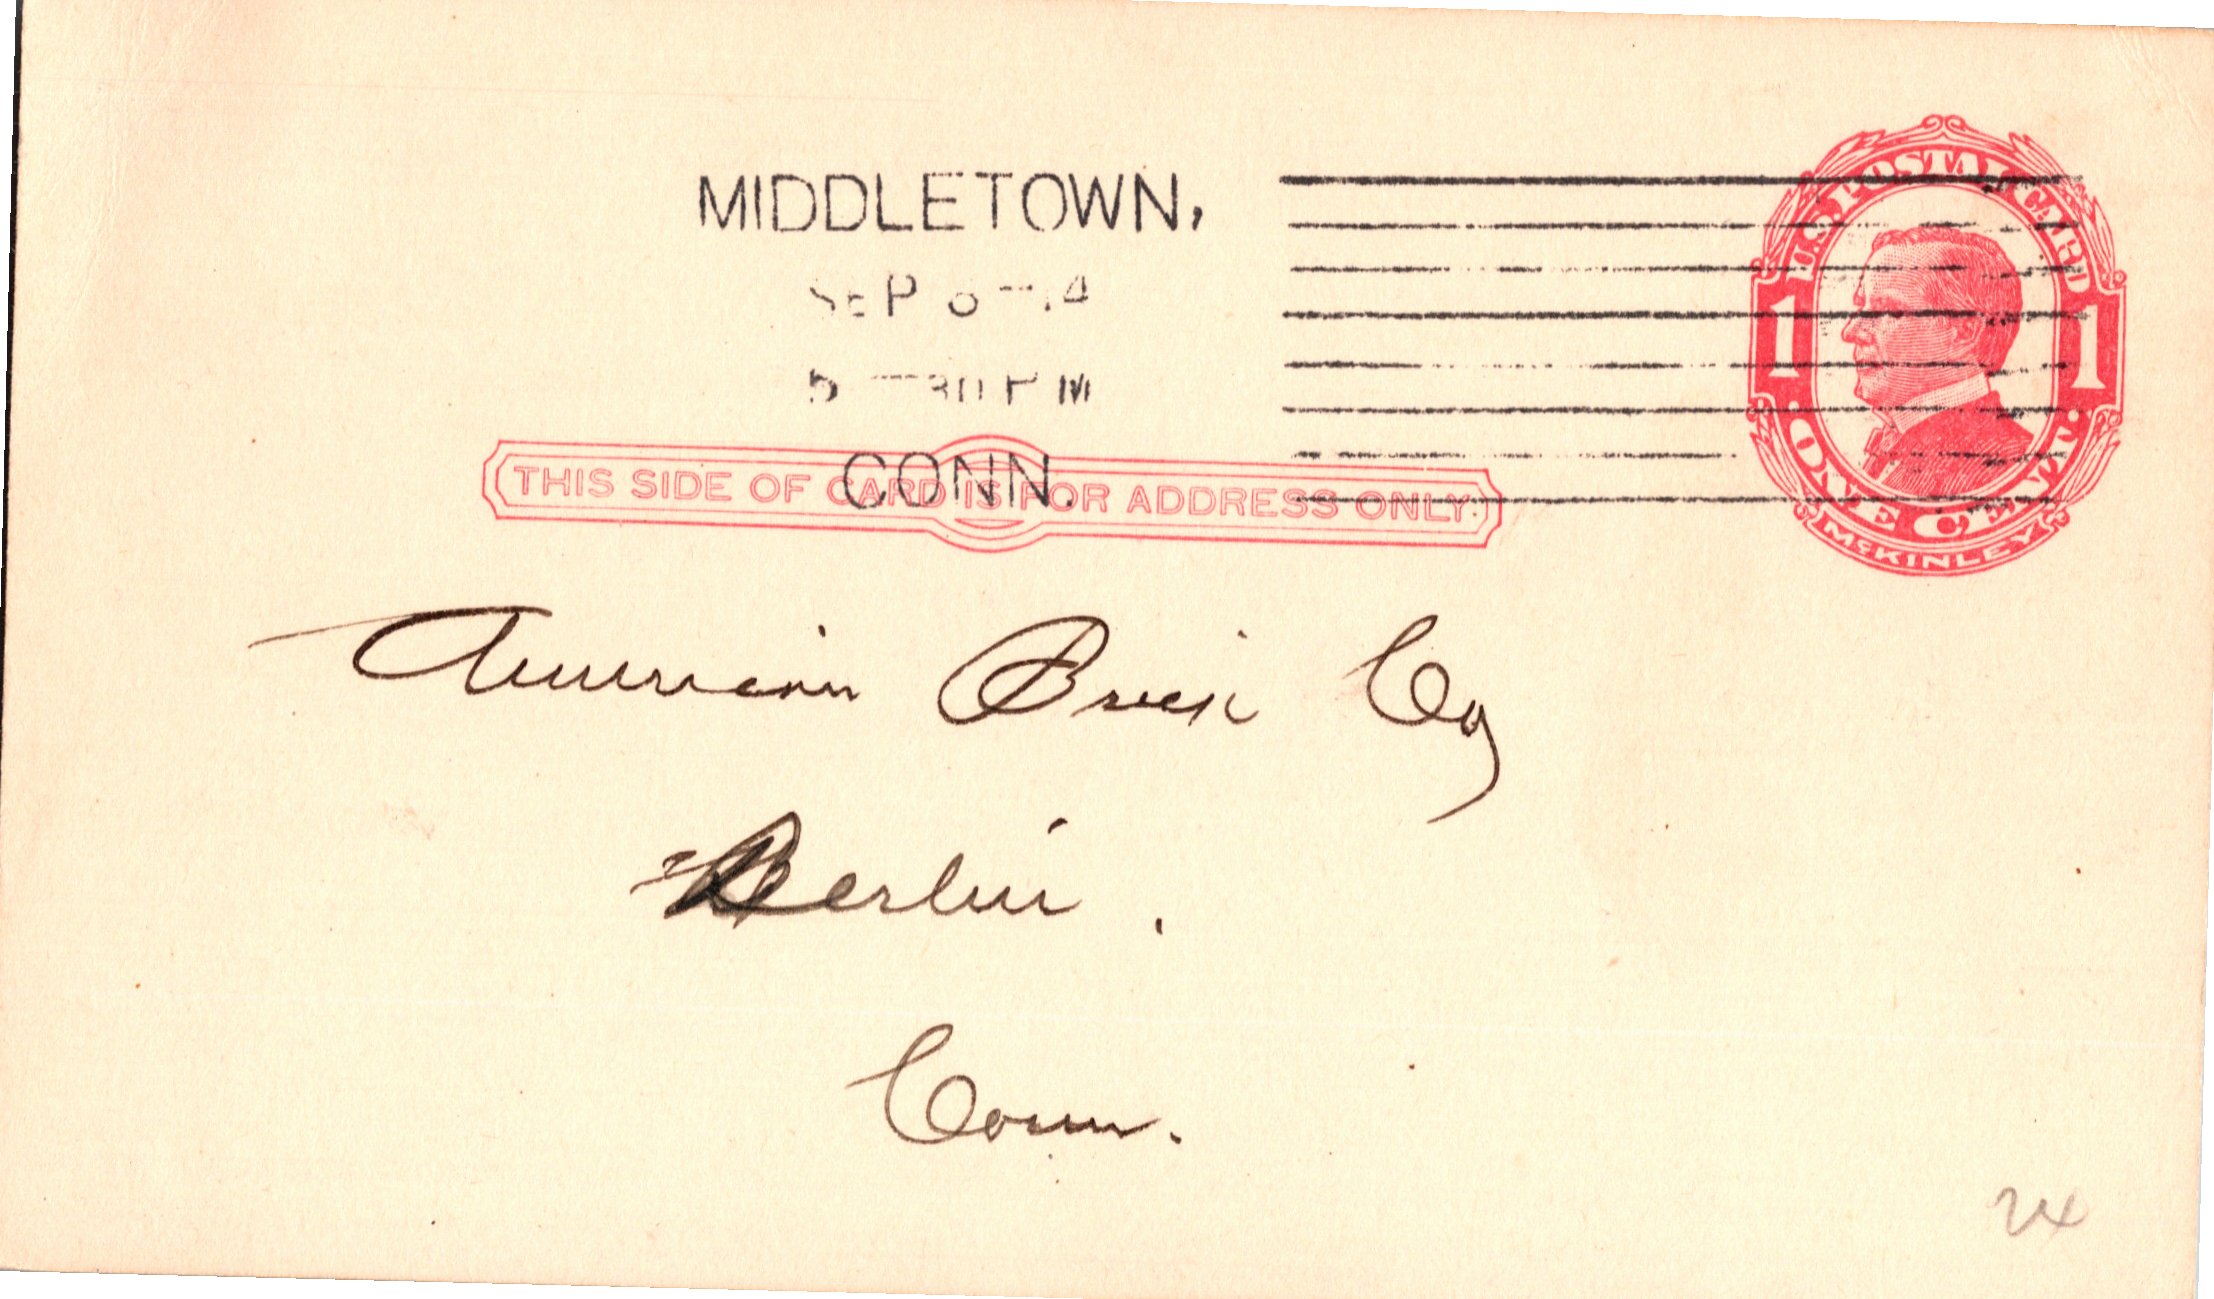 MIDDLETOWN,
SEP 8 - 14
5 - 30 PM
CONN.
U.S. POSTAL CARD
1 1
· ONE CENT ·
McKINLEY
THIS SIDE OF CARD IS FOR ADDRESS ONLY.
American Brick Co
Berlin.
Conn.